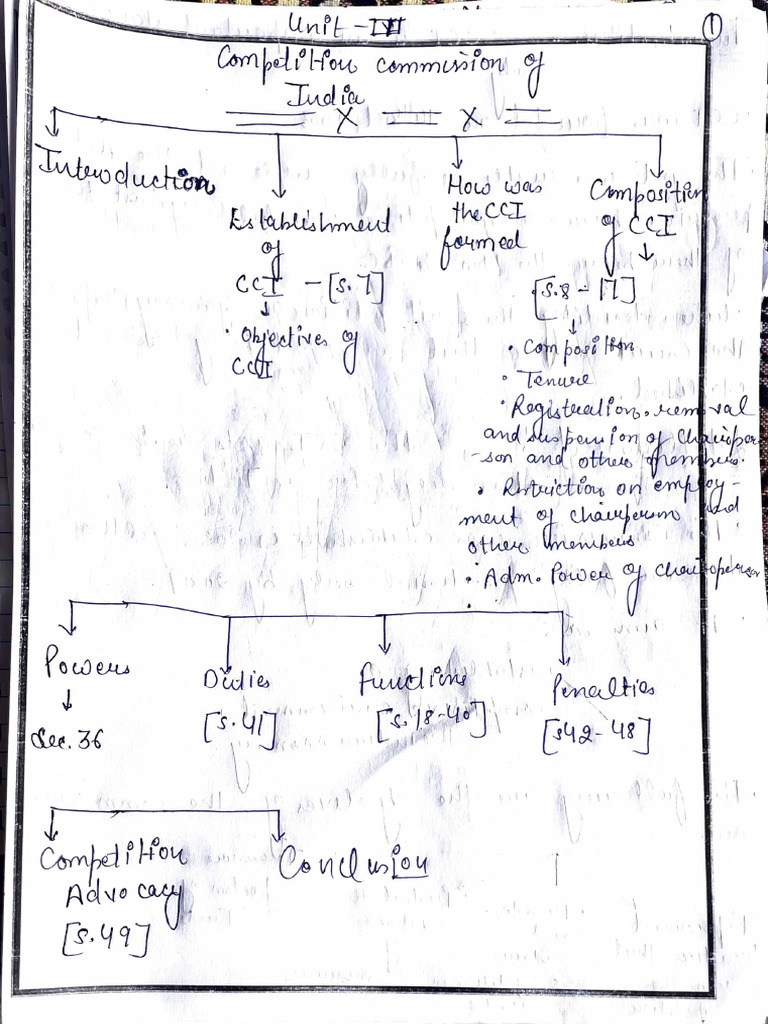 Unit - III
1
Competition commission of
India
x x
Introduction
Establishment
of
CCI - [S.7]
• Objectives of
CCI
How was
the CCI
formed
Composition
of CCI
[S.8 - 17]
• Composition
• Tenure
• Registration, removal
and suspension of chairper
-son and other members.
• Restriction on employ-
ment of chairperson and
other members
• Adm. Power of chairperson
Powers
Sec. 36
Duties
[S.41]
Functions
[S.18-40]
Penalties
[S42-48]
Competition
Advocacy
[S.49]
Conclusion